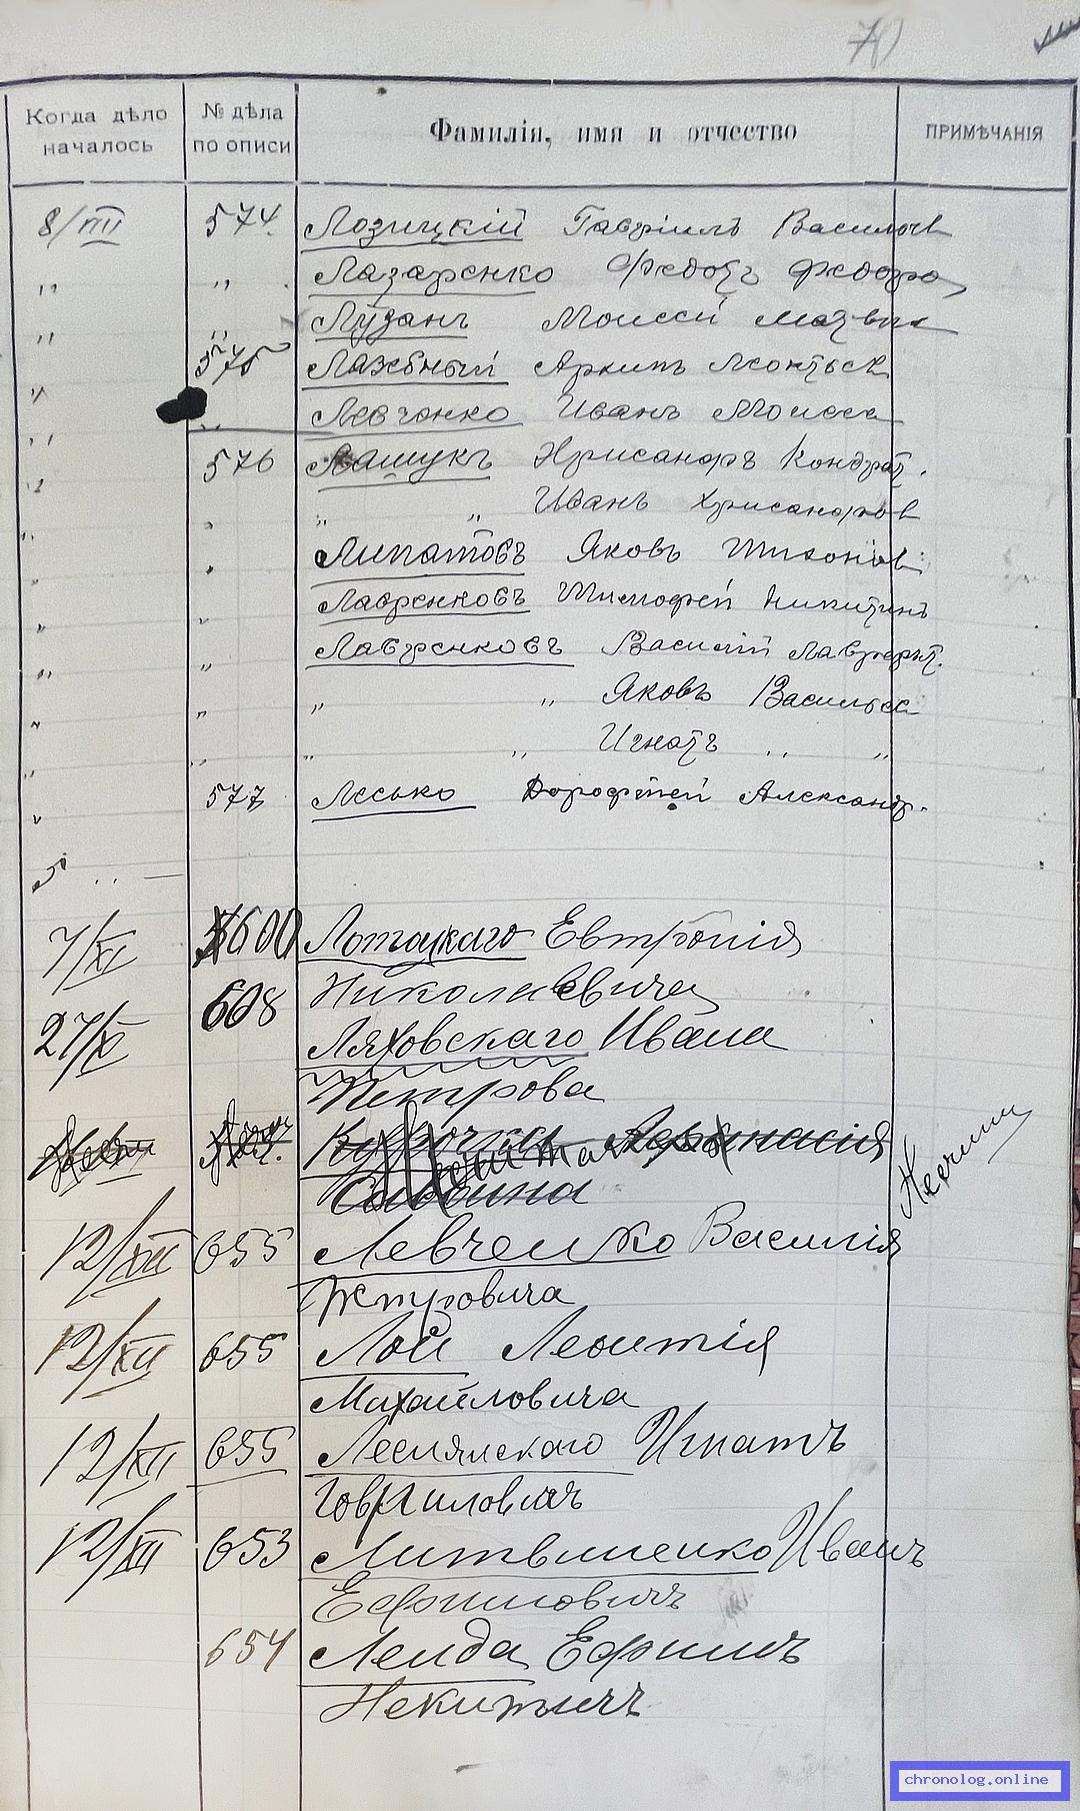 70
Когда дѣло началось
№ дѣла по описи
Фамилія, имя и отчество
ПРИМѢЧАНІЯ
8/VIII 574. Лозицкій Гавріилъ Васильев
" " Лазаренко Федотъ Федоро
" " Лузанъ Моисей
" 575 Лажбный Архипъ Леонтьев
" " Левченко Иванъ Моисее
" 576 Лашукъ Хрисанфъ Кондрат.
" " " " Иванъ Хрисанфов
" " Липатовъ Яковъ Тихонов
" " Лавренковъ Тимофей Никитинъ
" " Лавренковъ Василій Лаврент.
" " " " Яковъ Васильев
" " " " Игнатъ " "
" 577 Лесько Дорофѣей Александр.
7/XI 600 Лотоцкаго Евтропія
Николаевича
27/X 608 Ляховскаго Ивана
Петрова
Курочка Афанасія
Саввина
12/XII 655 Левченко Василія
Петровича
12/XII 655 Лой Леонтія
Михайловича
12/XII 655 Леснянскаго Игнатъ
Говриловичъ
12/XII 653 Литвиненко Иванъ
Ефимовичъ
654 Леида Ефимъ
Некитичъ
chronolog.online